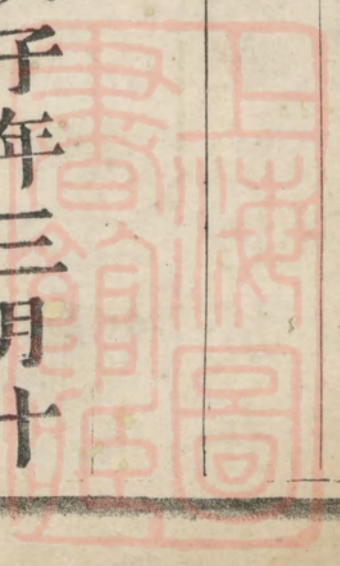 上海圖
書館藏
子年三月十